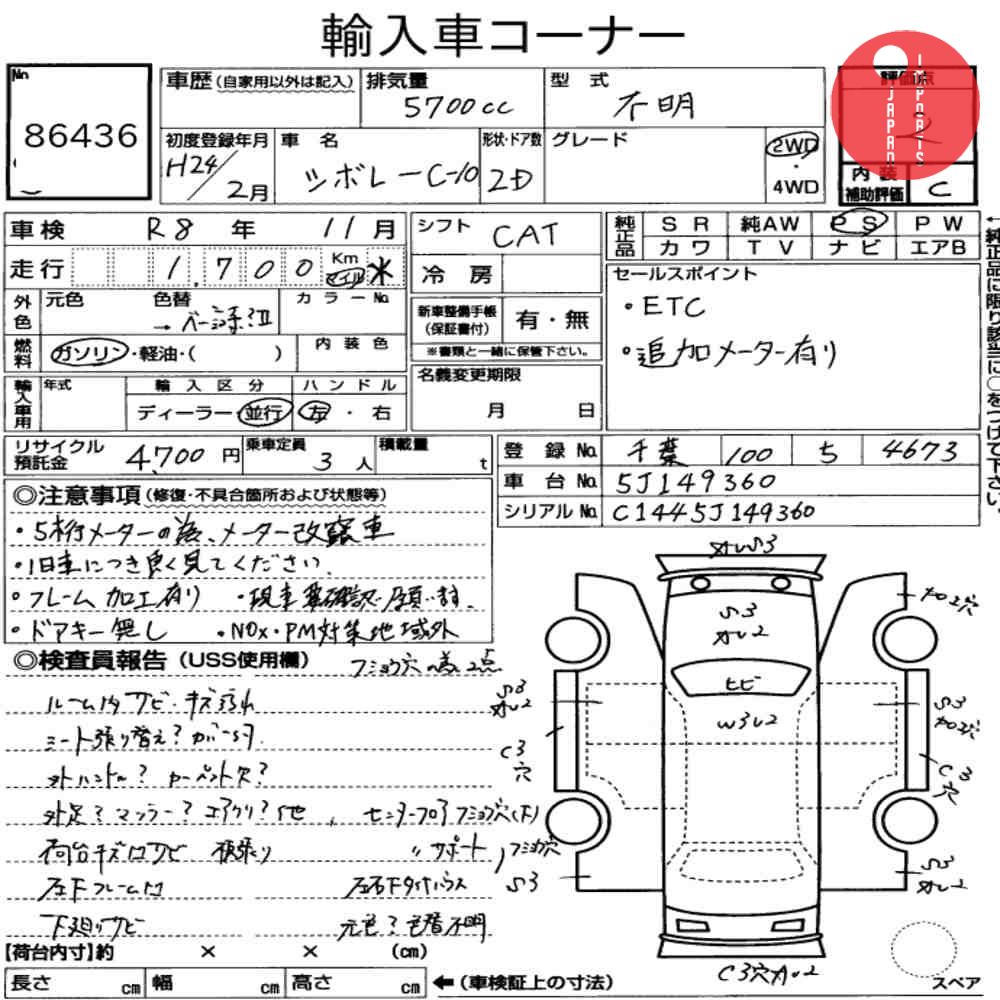 輸入車コーナー
No
86436
車歴(自家用以外は記入)
排気量
5700cc
型式
不明
評価点
2
IMPORTS
JAPAN
初度登録年月
H24/2月
車名
シボレーC-10
形状・ドア数
2D
グレード
2WD
・
4WD
内装
補助評価
C
車検 R8年 11月
シフト CAT
純正品
SR 純AW PS PW
カワ TV ナビ エアB
←純正品に限り該当に○をつけて下さい。
走行 1,700 Km マイル ※
冷房
セールスポイント
・ETC
・追加メーター有り
外色
元色
色替
カラーNo
新車整備手帳
(保証書付)
有・無
※書類と一緒に保管下さい。
燃料
ガソリン・軽油・( )
内装色
名義変更期限
月 日
輸入車用
年式
輸入区分
ハンドル
ディーラー・並行
左・右
リサイクル
預託金
4,700円
乗車定員
3人
積載量
t
登録No 千葉 100 ち 4673
車台No 5J149360
シリアルNo C1445J149360
◎注意事項(修復・不具合箇所および状態等)
・5桁メーターの為、メーター改竄車
・旧車につき良く見てください。
・フレーム加工有り ・現車要確認願います。
・ドアキー無し ・NOx・PM対策地域外
◎検査員報告(USS使用欄)
フショク穴の為2点
ルーム内サビ・キズ
シート張り替え?
外ハンドル? カーペット欠?
外足?マフラー?エアクリ?他
センターフロアフショク穴(下)
荷台キズ凹サビ
〃 サポート フショク穴
左下フレーム凹
下廻りサビ
元色?色替不明
S3
ヒビ
W3U2
S3
C3
穴
S3
S3
C3
穴
S3
C3穴
【荷台内寸】約 × × (cm)
長さ cm 幅 cm 高さ cm ←(車検証上の寸法)
スペア